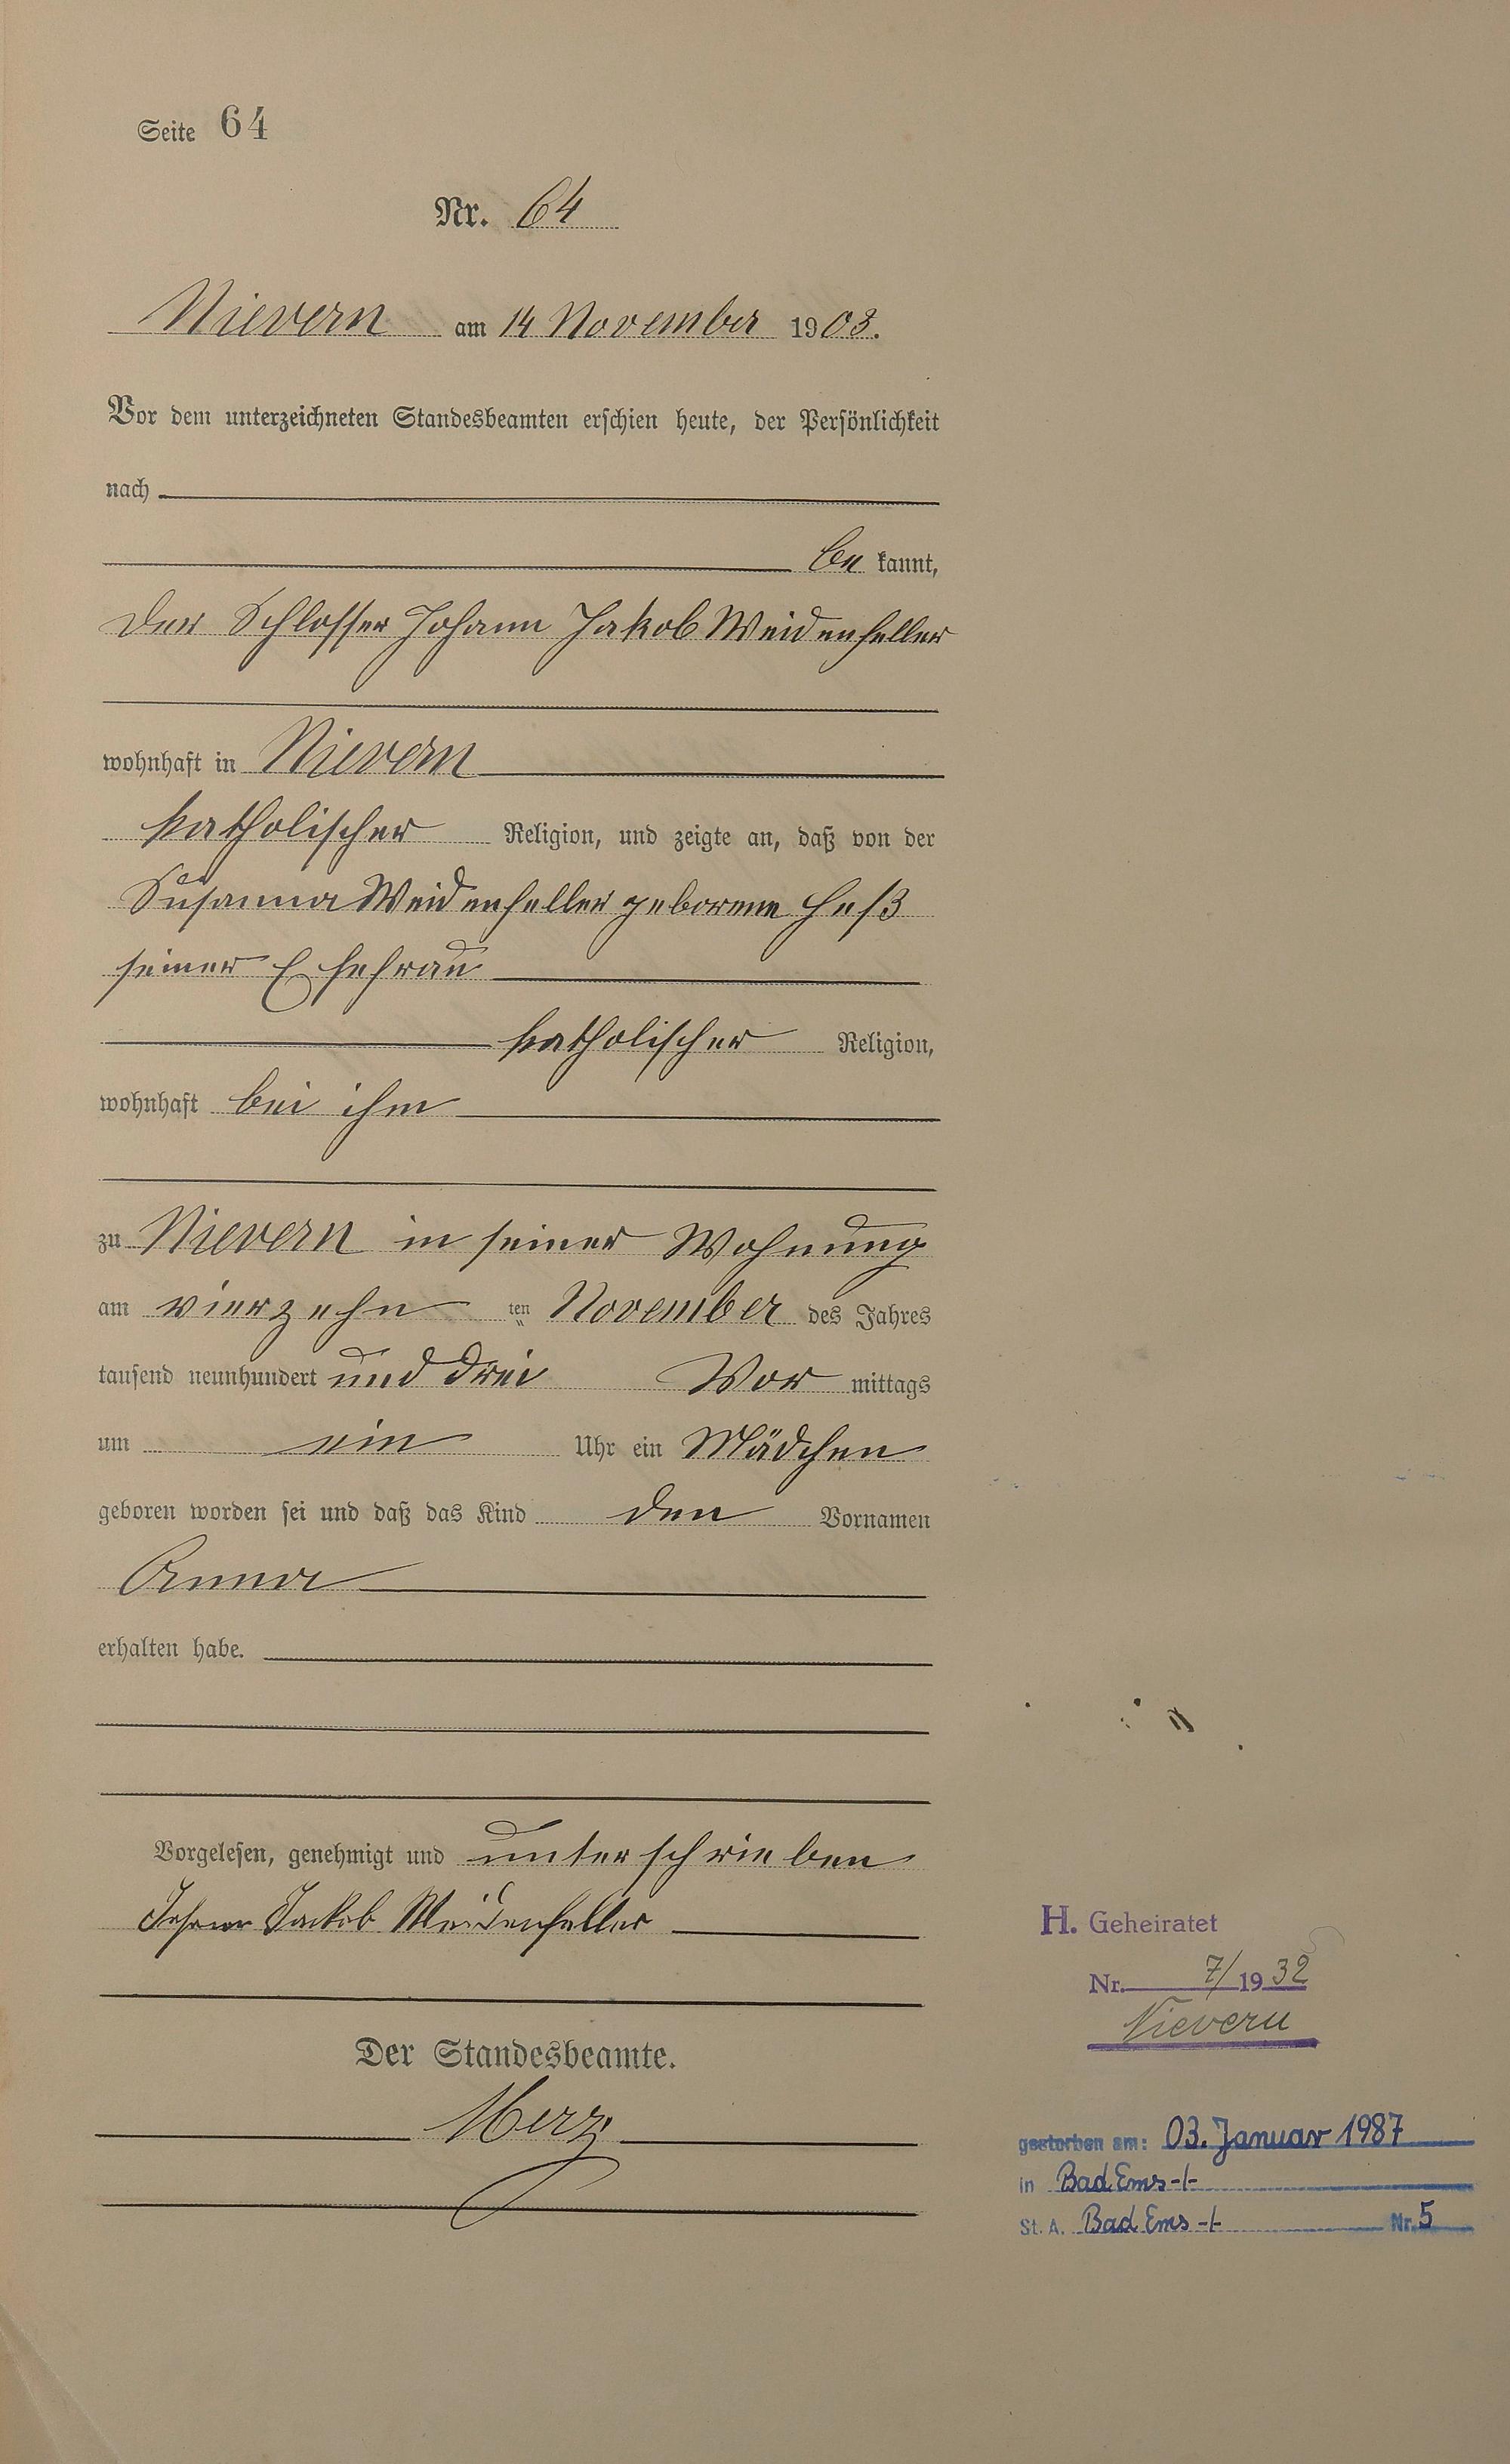 Seite 64
Nr. 64
Nievern am 14 November 1903.
Vor dem unterzeichneten Standesbeamten erschien heute, der Persönlichkeit
nach
be kannt,
der Schlosser Johann Jakob Weidenfeller
wohnhaft in Nievern
katholischer Religion, und zeigte an, daß von der
Susanna Weidenfeller geborene Heß
seiner Ehefrau
katholischer Religion,
wohnhaft bei ihm
zu Nievern in seiner Wohnung
am vierzehn ten November des Jahres
tausend neunhundert und drei Vor mittags
um ein Uhr ein Mädchen
geboren worden sei und daß das Kind den Vornamen
Anna
erhalten habe.
Vorgelesen, genehmigt und unterschrieben
Johann Jackob Weidenfeller
Der Standesbeamte.
Merz
H. Geheiratet
Nr. 7/1932
Nievern
gestorben am: 03. Januar 1987
in Bad Ems -/-
St. A. Bad Ems -/- Nr. 5